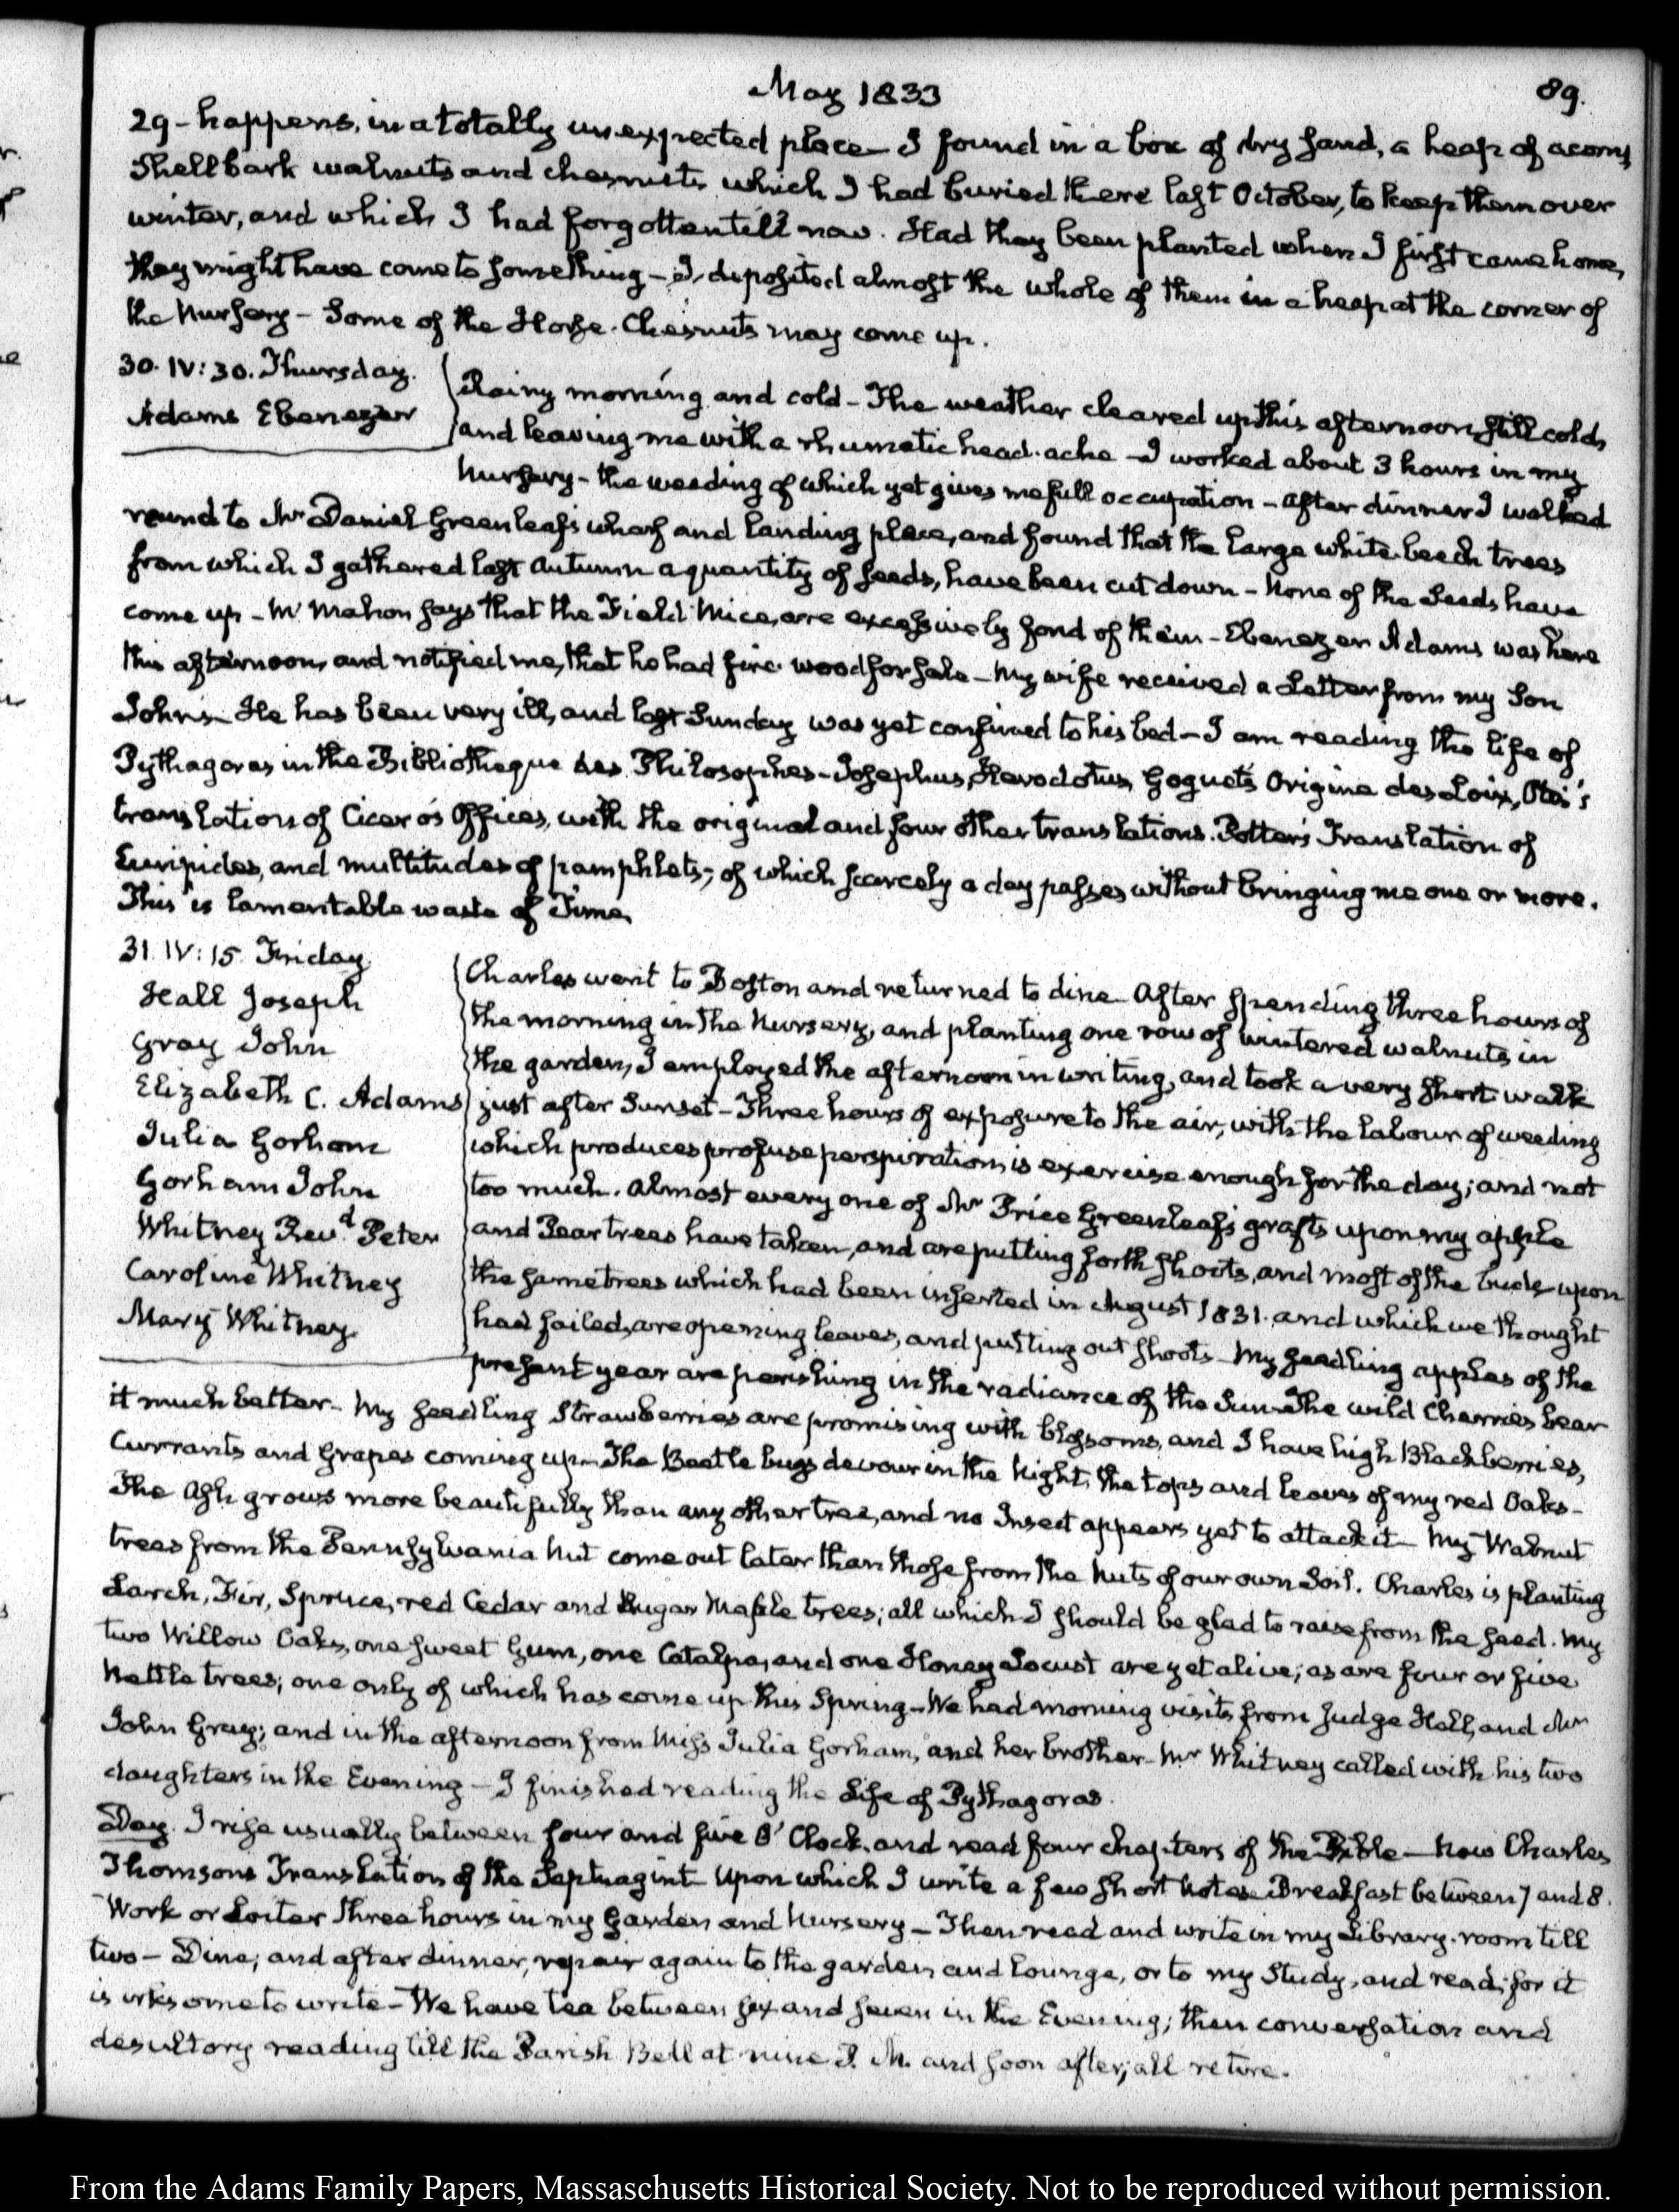 May 1833
89.
29 - happens, in a totally unexpected place - I found in a box of dry sand, a heap of acorns,
Shellbark walnuts and chesnuts which I had buried there last October, to keep them over
winter, and which I had forgotten till now. Had they been planted when I first came home,
they might have come to something - I deposited almost the whole of them in a heap at the corner of
the Nursery - Some of the Horse-Chesnuts may come up.
30. IV:30. Thursday.
Adams Ebenezer
Rainy morning and cold - The weather cleared up this afternoon, still cold,
and leaving me with a rhumatic head-ache - I worked about 3 hours in my
Nursery - the weeding of which yet gives me full occupation - after dinner I walked
round to Mr Daniel Greenleaf's wharf and landing place, and found that the large white beech trees
from which I gathered last Autumn a quantity of seeds, have been cut down - None of the Seeds have
come up - McMahon says that the Field Mice, are excessively fond of them - Ebenezer Adams was here
this afternoon, and notified me, that he had fire-wood for sale - My wife received a Letter from my Son
John - He has been very ill, and last Sunday was yet confined to his bed - I am reading the life of
Pythagoras in the Bibliotheque des Philosophes - Josephus, Herodotus, Goguet's Origine des Loix,
translation of Cicero's Offices, with the original and four other translations. Potter's Translation of
Euripides, and multitudes of pamphlets; of which scarcely a day passes without bringing me one or more.
This is lamentable waste of Time.
31. IV:15. Friday.
Hall Joseph
Gray John
Elizabeth C. Adams
Julia Gorham
Gorham John
Whitney Revd. Peter
Caroline Whitney
Mary Whitney.
Charles went to Boston and returned to dine - After spending three hours of
the morning in the Nursery, and planting one row of wintered walnuts in
the garden, I employed the afternoon in writing, and took a very short walk
just after Sunset - Three hours of exposure to the air, with the labour of weeding
which produces profuse perspiration, is exercise enough for the day; and not
too much. Almost every one of Mr Price Greenleaf's grafts upon my apple
and Pear trees have taken, and are putting forth shoots, and most of the buds upon
the same trees which had been inserted in August 1831. and which we thought
had failed, are opening leaves, and putting out shoots - My seedling apples of the
present year are perishing in the radiance of the Sun - The wild Cherries bear
it much better - My seedling Strawberries are promising with blossoms, and I have high Blackberries,
Currants and Grapes coming up - The Beetle bugs devour in the Night, the tops and leaves of my red Oaks -
The Ash grows more beautifully than any other tree, and no Insect appears yet to attack it - My Walnut
trees from the Pennsylvania Nut come out later than those from the Nuts of our own Soil. Charles is planting
Larch, Fir, Spruce, red Cedar and Sugar Maple trees; all which I should be glad to raise from the seed. My
two Willow Oaks, one sweet Gum, one Catalpa, and one Honey Locust are yet alive; as are four or five
Nettle trees; one only of which has come up this Spring - We had morning visits from Judge Hall, and Mr
John Gray; and in the afternoon from Miss Julia Gorham, and her brother - Mr Whitney called with his two
daughters in the Evening - I finished reading the Life of Pythagoras.
Day. I rise usually between four and five O'Clock, and read four chapters of the Bible - Now Charles
Thomsons Translation of the Septuagint Upon which I write a few short Notes. Breakfast between 7 and 8.
Work or Loiter three hours in my Garden and Nursery - Then read and write in my Library-room till
two - Dine; and after dinner, repair again to the garden and lounge, or to my Study, and read; for it
is irksome to write - We have tea between six and seven in the Evening; then conversation and
desultory reading till the Parish Bell at nine P. M. and soon after; all retire.
From the Adams Family Papers, Massachusetts Historical Society. Not to be reproduced without permission.